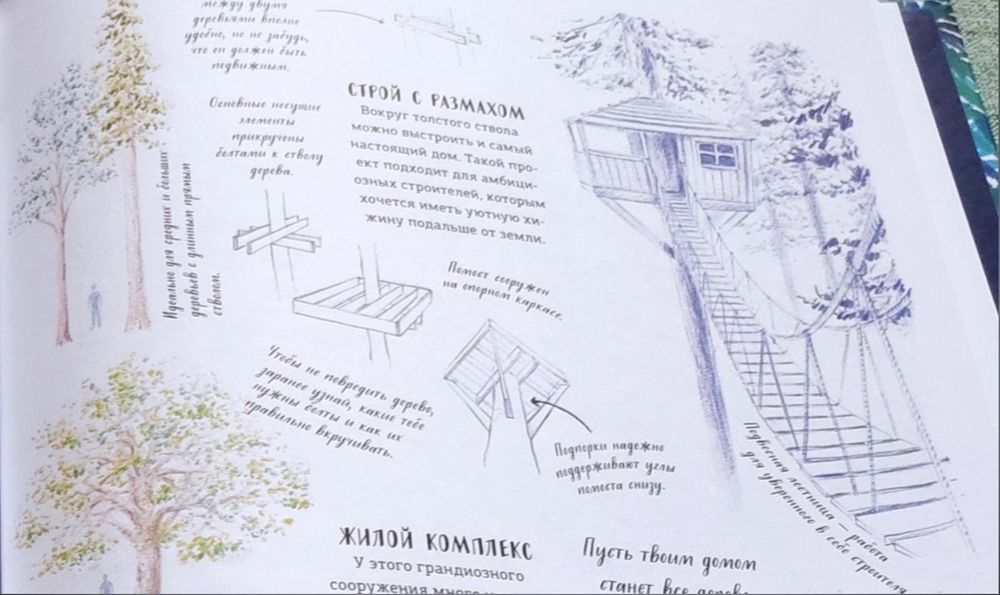 между двумя
деревьями вполне
удобно, но не забудь,
что он должен быть
подвижным.
Основные несущие
элементы
прикручены
болтами к стволу
дерева.
Идеально для средних и больших
деревьев с длинным прямым
стволом.
СТРОЙ С РАЗМАХОМ
Вокруг толстого ствола
можно выстроить и самый
настоящий дом. Такой про-
ект подходит для амбици-
озных строителей, которым
хочется иметь уютную хи-
жину подальше от земли.
Помост сооружен
на опорном каркасе.
Чтобы не повредить дерево,
заранее узнай, какие тебе
нужны болты и как их
правильно вкручивать.
Подпорки надежно
поддерживают углы
помоста снизу.
Подвесная лестница – работа
для уверенного в себе строителя
ЖИЛОЙ КОМПЛЕКС
У этого грандиозного
сооружения много
Пусть твоим домом
станет все